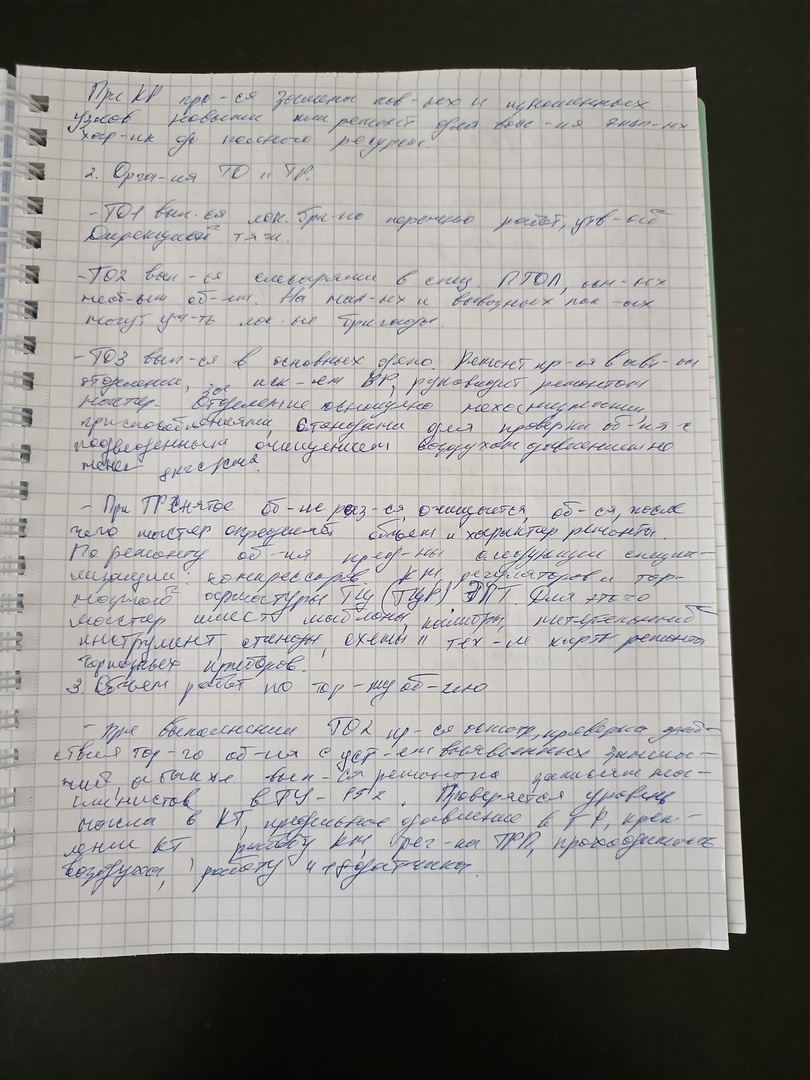 При КР про-ся замены пов-ных и изношенных
узлов новыми или ремонт для вос-ия экп-ых
хар-ик до полного ресурса.
2. Орга-ия ТО и ТР.
- ТО1 вып-ся лок. бри-но перечню работ, утв-ой
Дирекцией тяги.
- ТО2 вып-ся слесарями в спец. ПТОЛ, осн-ых
необ-ым об-ем. На ман-ых и вывозных лок-ых
могут уч-ть лок-ые бригады.
- ТО3 вып-ся в основных депо. Ремонт пр-ся в авт-ом
отделении, за иск-ем ВР, руководит ремонтом
мастер. Отделение оснащено
приспособлениями, стендами для проверки об-ия с
подведенным очищенным воздухом давлением не
менее
- При ТР снятое об-ие раз-ся, очищается, об-ся, после
чего мастер определяет объем и характер ремонта.
По ремонту об-ия пред-ны следующие специа-
лизации: компрессоров, КМ, регуляторов и тор-
мозной арматуры ТЦ (ТЦР) ЭПТ. Для этого
мастер имеет шаблоны, калибры, мерительный
инструмент, стенды, схемы и тех-ие карты ремонта
тормозных приборов.
3. Объем работ по тор-му об-ию
- при выполнении ТО2 пр-ся осмотр, проверка дей-
ствия тор-го об-ия с уст-ем выявленных замеча-
ний, а также вып-ся ремонт по записям ма-
шинистов в ТУ-152. Проверяется уровень
масла в КТ, предельное давление в ГР, креп-
ление КТ работу КМ, рег-ка ТРП, проходимость
воздуха, работу датчика.